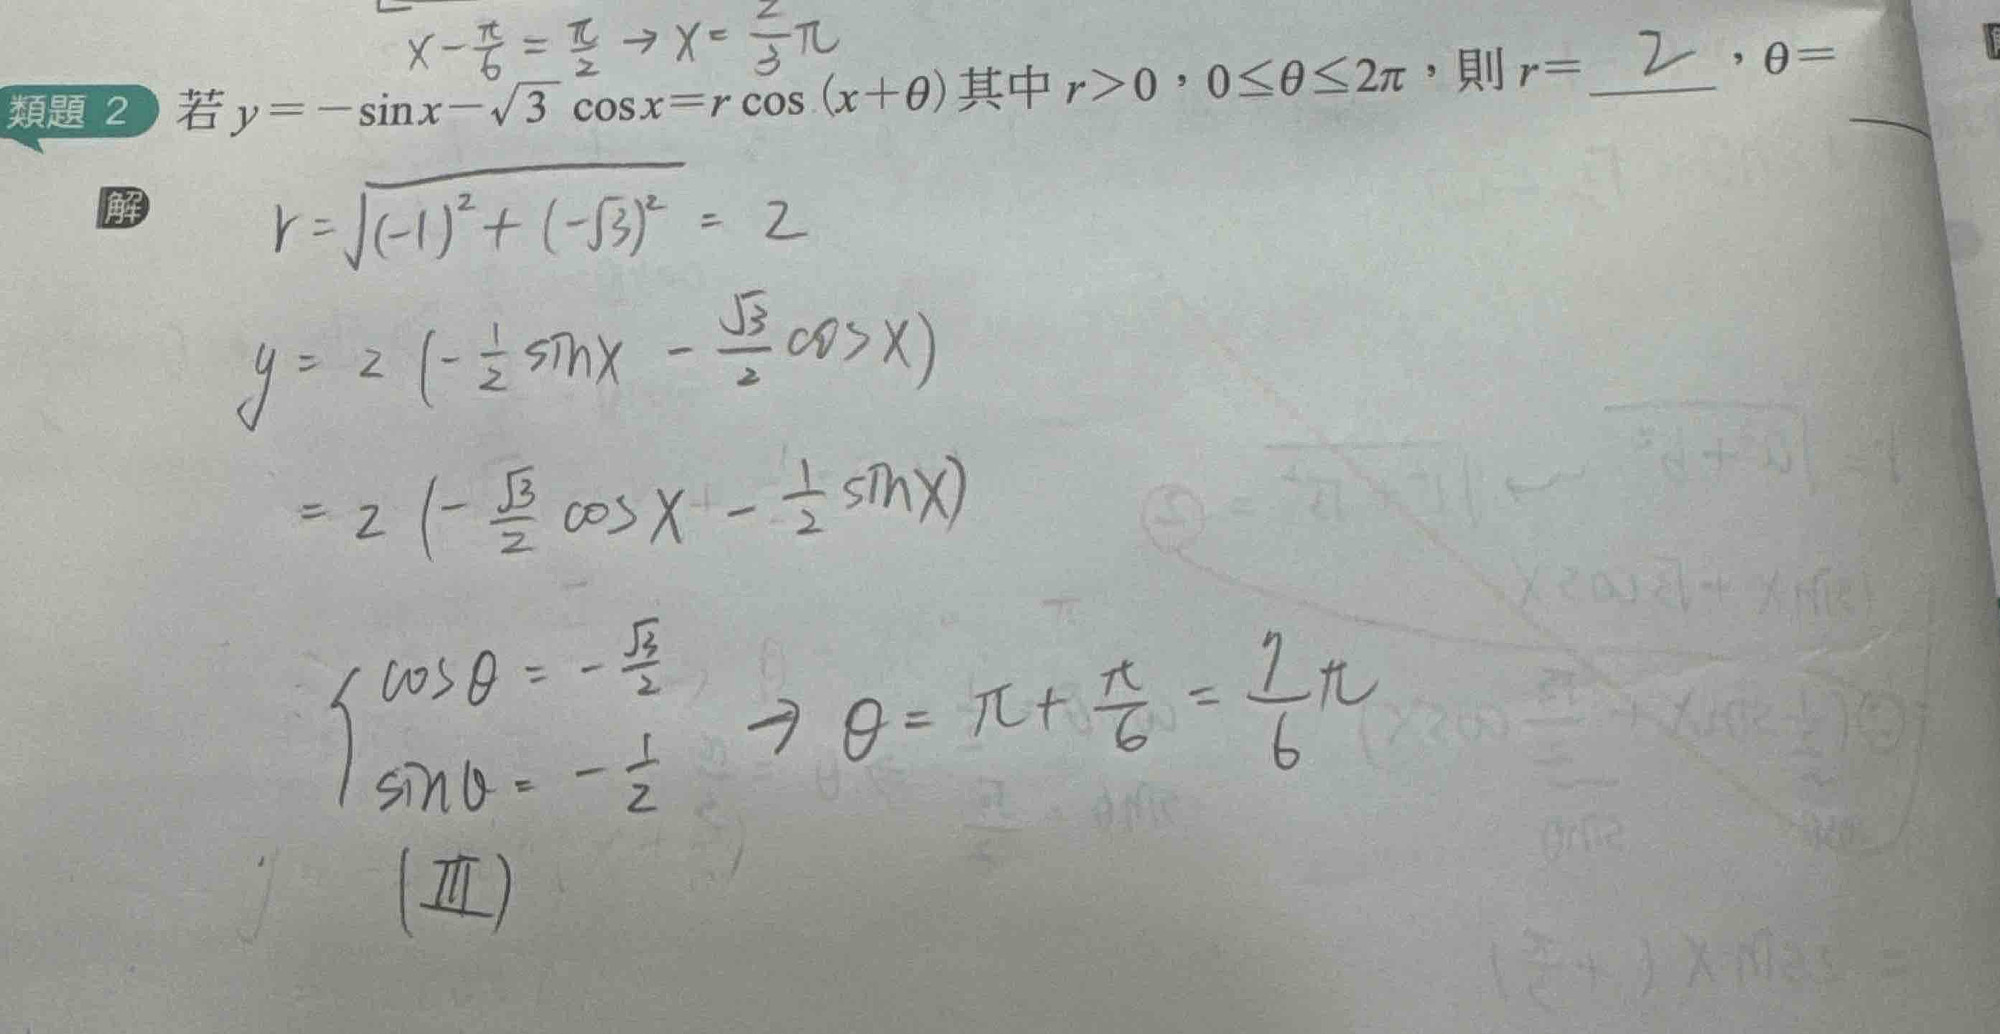 x-π/6 = π/2 → x = 2/3 π
類題 2 若 y=-sinx-√3 cosx=r cos (x+θ) 其中 r>0,0≤θ≤2π,則 r= 2 ,θ=
解 r = √((-1)² + (-√3)²) = 2
y = 2 (-1/2 sinx - √3/2 cosx)
= 2 (-√3/2 cosx - 1/2 sinx)
{ cosθ = -√3/2
sinθ = -1/2 → θ = π + π/6 = 7/6 π
(III)